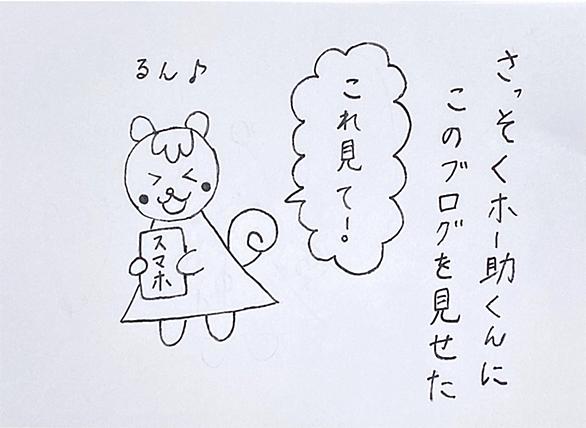 さっそくホー助くんに
このブログを見せた
これ見て!
るん♪
スマホ